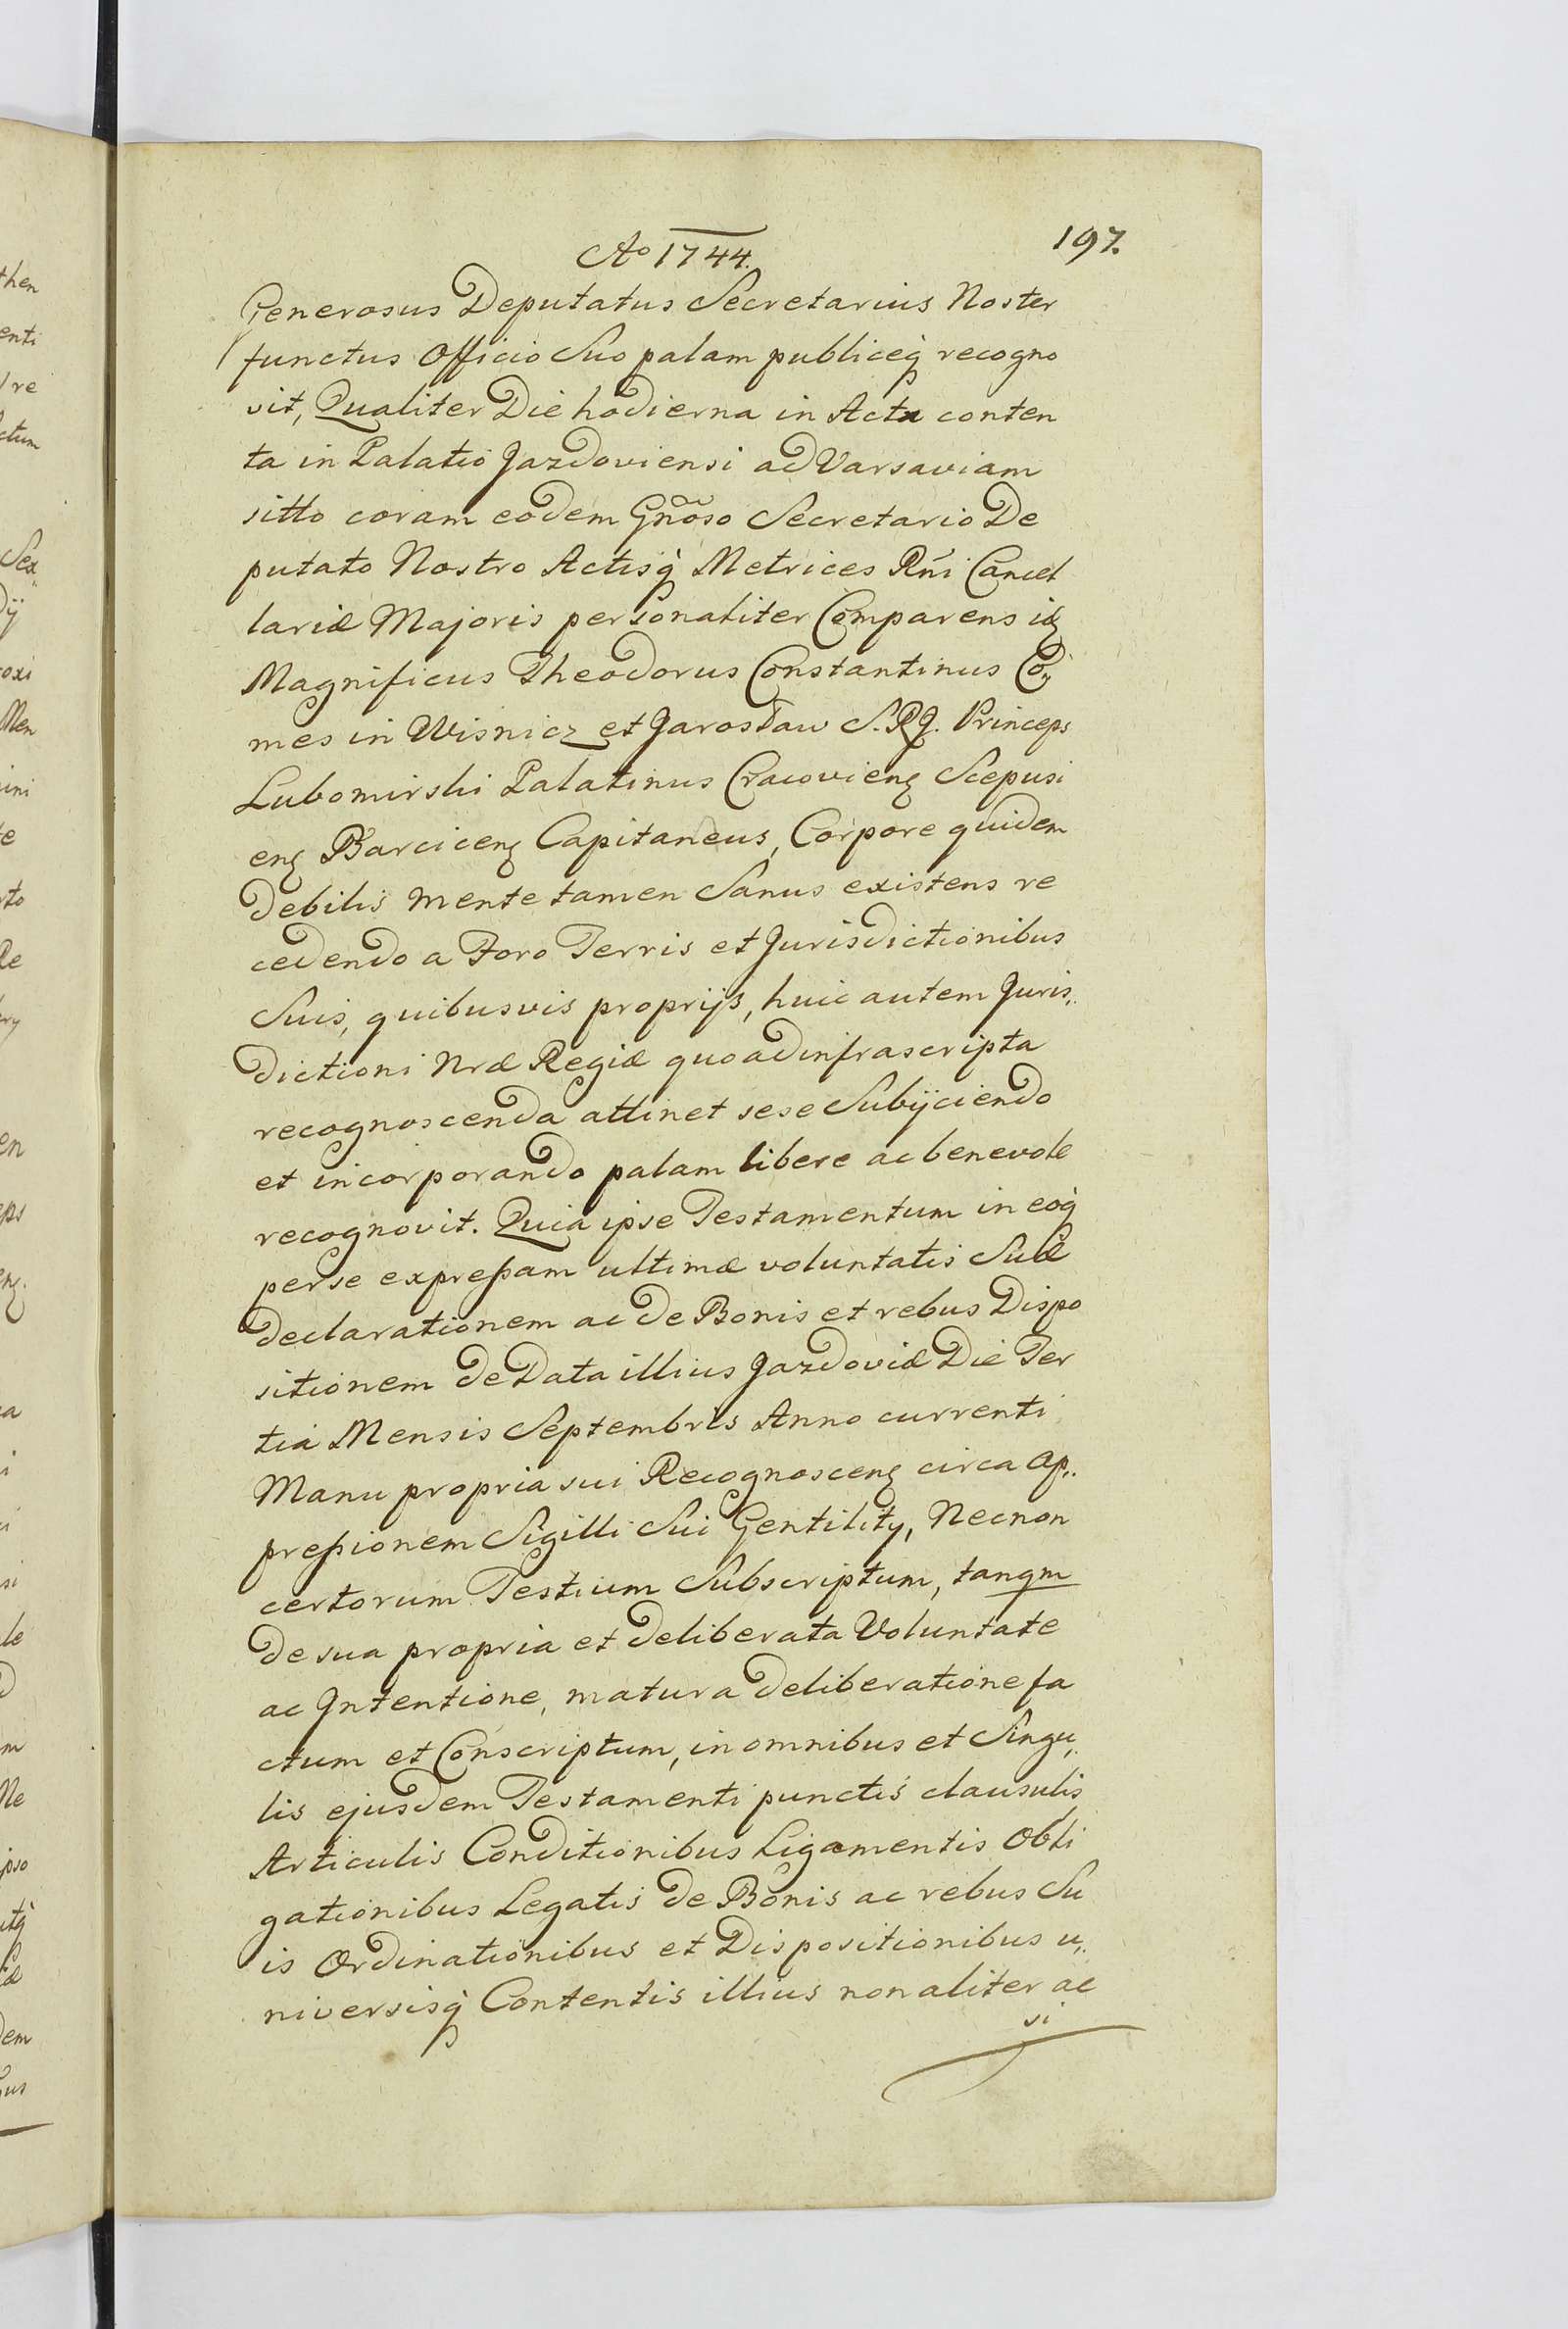 Ao 1744. 197.
Generosus Deputatus Secretarius Noster
functus Officio Suo palam publiceq̀ recogno
vit, Qualiter Die hodierna in Acta conten
ta in Palatio Jazdoviensi ad Varsaviam
sitto coram eodem Gñoso Secretario De
putato Nostro Actisq̀ Metrices Rñi Cancel
lariæ Majoris personaliter Comparens
Magnificus Theodorus Constantinus Co,,
mes in Wisnicz et Jarosław S.R.J. Princeps
Lubomirski Palatinus Cracovienꝫ Scepusi
enꝫ Barcicenꝫ Capitaneus, Corpore quidem
debilis mente tamen Sanus existens re
cedendo a Foro Terris et Jurisdictionibus
Suis, quibusvis proprijs, huic autem Juris,,
dictioni Nræ Regiæ quoad infrascripta
recognoscenda attinet sese Subijciendo
et incorporando palam libere ac benevole
recognovit. Quia ipse Testamentum in eoq̀
per se expreßam ultimæ voluntatis Suæ
declarationem ac de Bonis et rebus Dispo
sitionem de Data illius Jazdoviæ Die Ter
tia Mensis Septembris Anno currenti
Manu propria sui Recognoscenꝫ circa ap,,
preßionem Sigilli Sui Gentility, Necnon
certorum Testium Subscriptum, tanqm
de sua propria et deliberata Voluntate
ac Intentione, matura deliberatione fa
ctum et Conscriptum, in omnibus et Singu,,
lis ejusdem Testamenti punctis clausulis
Articulis Conditionibus Ligamentis Obli
gationibus Legatis de Bonis ac rebus Su
is Ordinationibus et Dispositionibus u,,
niversisq̀ Contentis illius non aliter ac
si